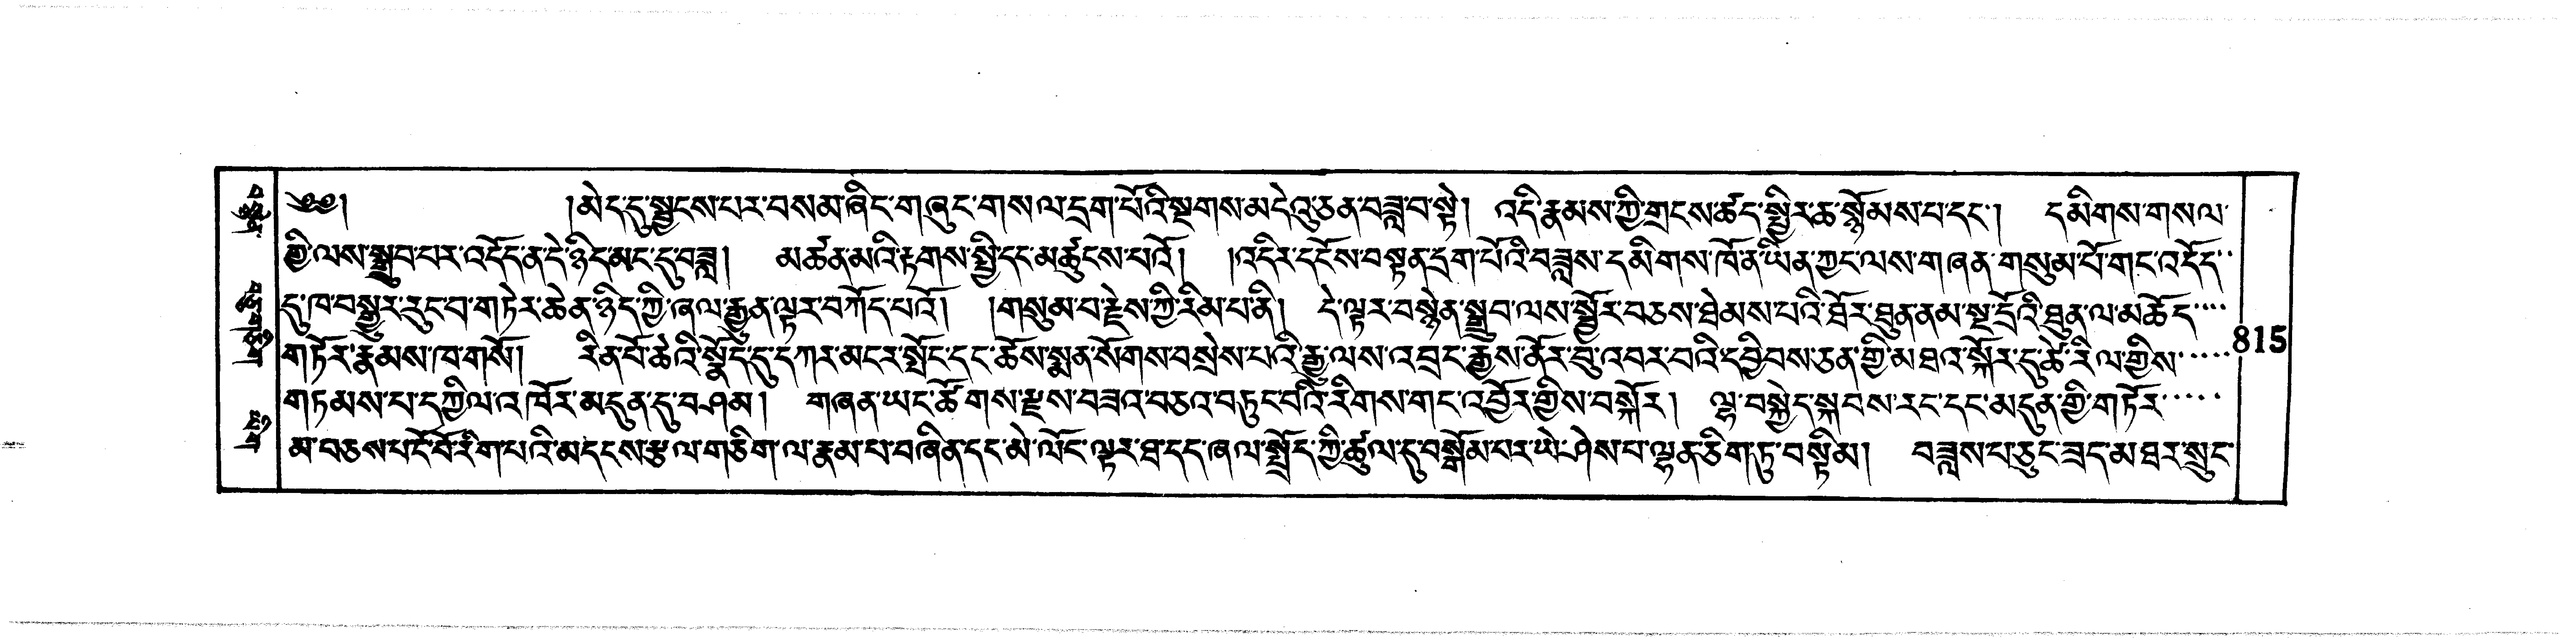 ༄༅། །མེད་དུ་སྦྱངས་པར་བསམ་ཞིང་གཞུང་གསལ་དྲག་པོའི་སྔགས་མདེའུ་ཅན་བཟླ་བ་སྟེ། འདི་རྣམས་ཀྱི་གྲངས་ཚད་སྤྱིར་ཆ་སྙོམས་པ་དང་། དམིགས་གསལ་
གྱི་ལས་སྒྲུབ་པར་འདོད་ན་དེ་ཉིད་མང་དུ་བཟླ། མཚན་མའི་རྟགས་སྤྱི་དང་མཚུངས་པའོ། །འདིར་དངོས་བསྟན་དྲག་པོའི་བཟླས་དམིགས་ཁོ་ན་ཡིན་ཀྱང་ལས་གཞན་གསུམ་པོ་གང་འདོད་
དུ་ཁ་བསྒྱུར་རུང་བ་གཏེར་ཆེན་ཉིད་ཀྱི་ཞལ་རྒྱུན་ལྟར་བཀོད་པའོ། །གསུམ་པ་རྗེས་ཀྱི་རིམ་པ་ནི། དེ་ལྟར་བསྙེན་སྒྲུབ་ལས་སྦྱོར་བཅས་ཐེམས་པའི་ཐོར་ཐུན་ནམ་སྔ་དྲོའི་ཐུན་ལ་མཆོད་
གཏོར་རྣམས་ཁ་གསོ། རིན་པོ་ཆེའི་སྣོད་དུ་དཀར་མངར་སྤོང་དང་ཆོས་སྨན་སོགས་བསྲེས་པའི་རྒྱུ་ལས་འབྲང་རྒྱས་ནོར་བུ་འབར་བའི་དབྱིབས་ཅན་གྱི་མཐའ་སྐོར་དུ་ཚེ་རིལ་གྱིས་
གཏམས་པ་དཀྱིལ་འཁོར་མདུན་དུ་བཤམ། གཞན་ཡང་ཚོགས་རྫས་བཟའ་བཅའ་བཏུང་བའི་རིགས་གང་འབྱོར་གྱིས་བསྐོར། ལྷ་བསྐྱེད་སྐབས་རང་དང་མདུན་གྱི་གཏོར་
མ་བཅས་པ་ངོ་བོ་རིག་པའི་མདངས་རྩལ་གཅིག་ལ་རྣམ་པ་བཞིན་དང་མེ་ལོང་ལྟར་ཐ་དད་ཞལ་སྤྲོད་ཀྱི་ཚུལ་དུ་བསྒོམ་པར་ཡེ་ཤེས་པ་ལྷན་ཅིག་ཏུ་བསྟིམ། བཟླས་པ་ཅུང་ཟད་མ་ཐར་སྲུང་
815